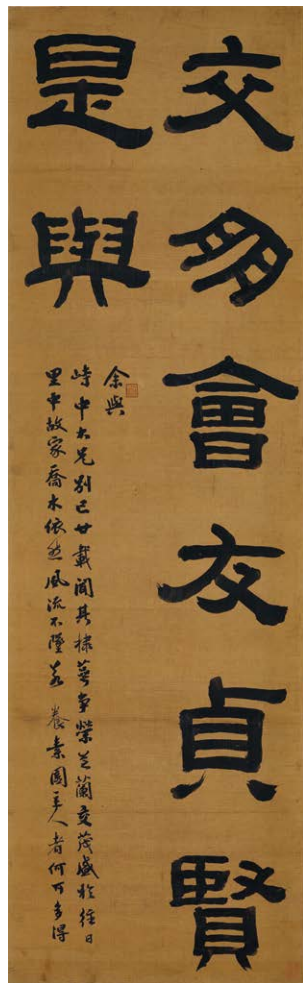 交朋會友貞賢
是與
余與
峙中大兄別已廿載聞其棣萼爭榮芝蘭交茂盛於往日
里中故家喬木依然風流不墜若 養素園主人者何可多得